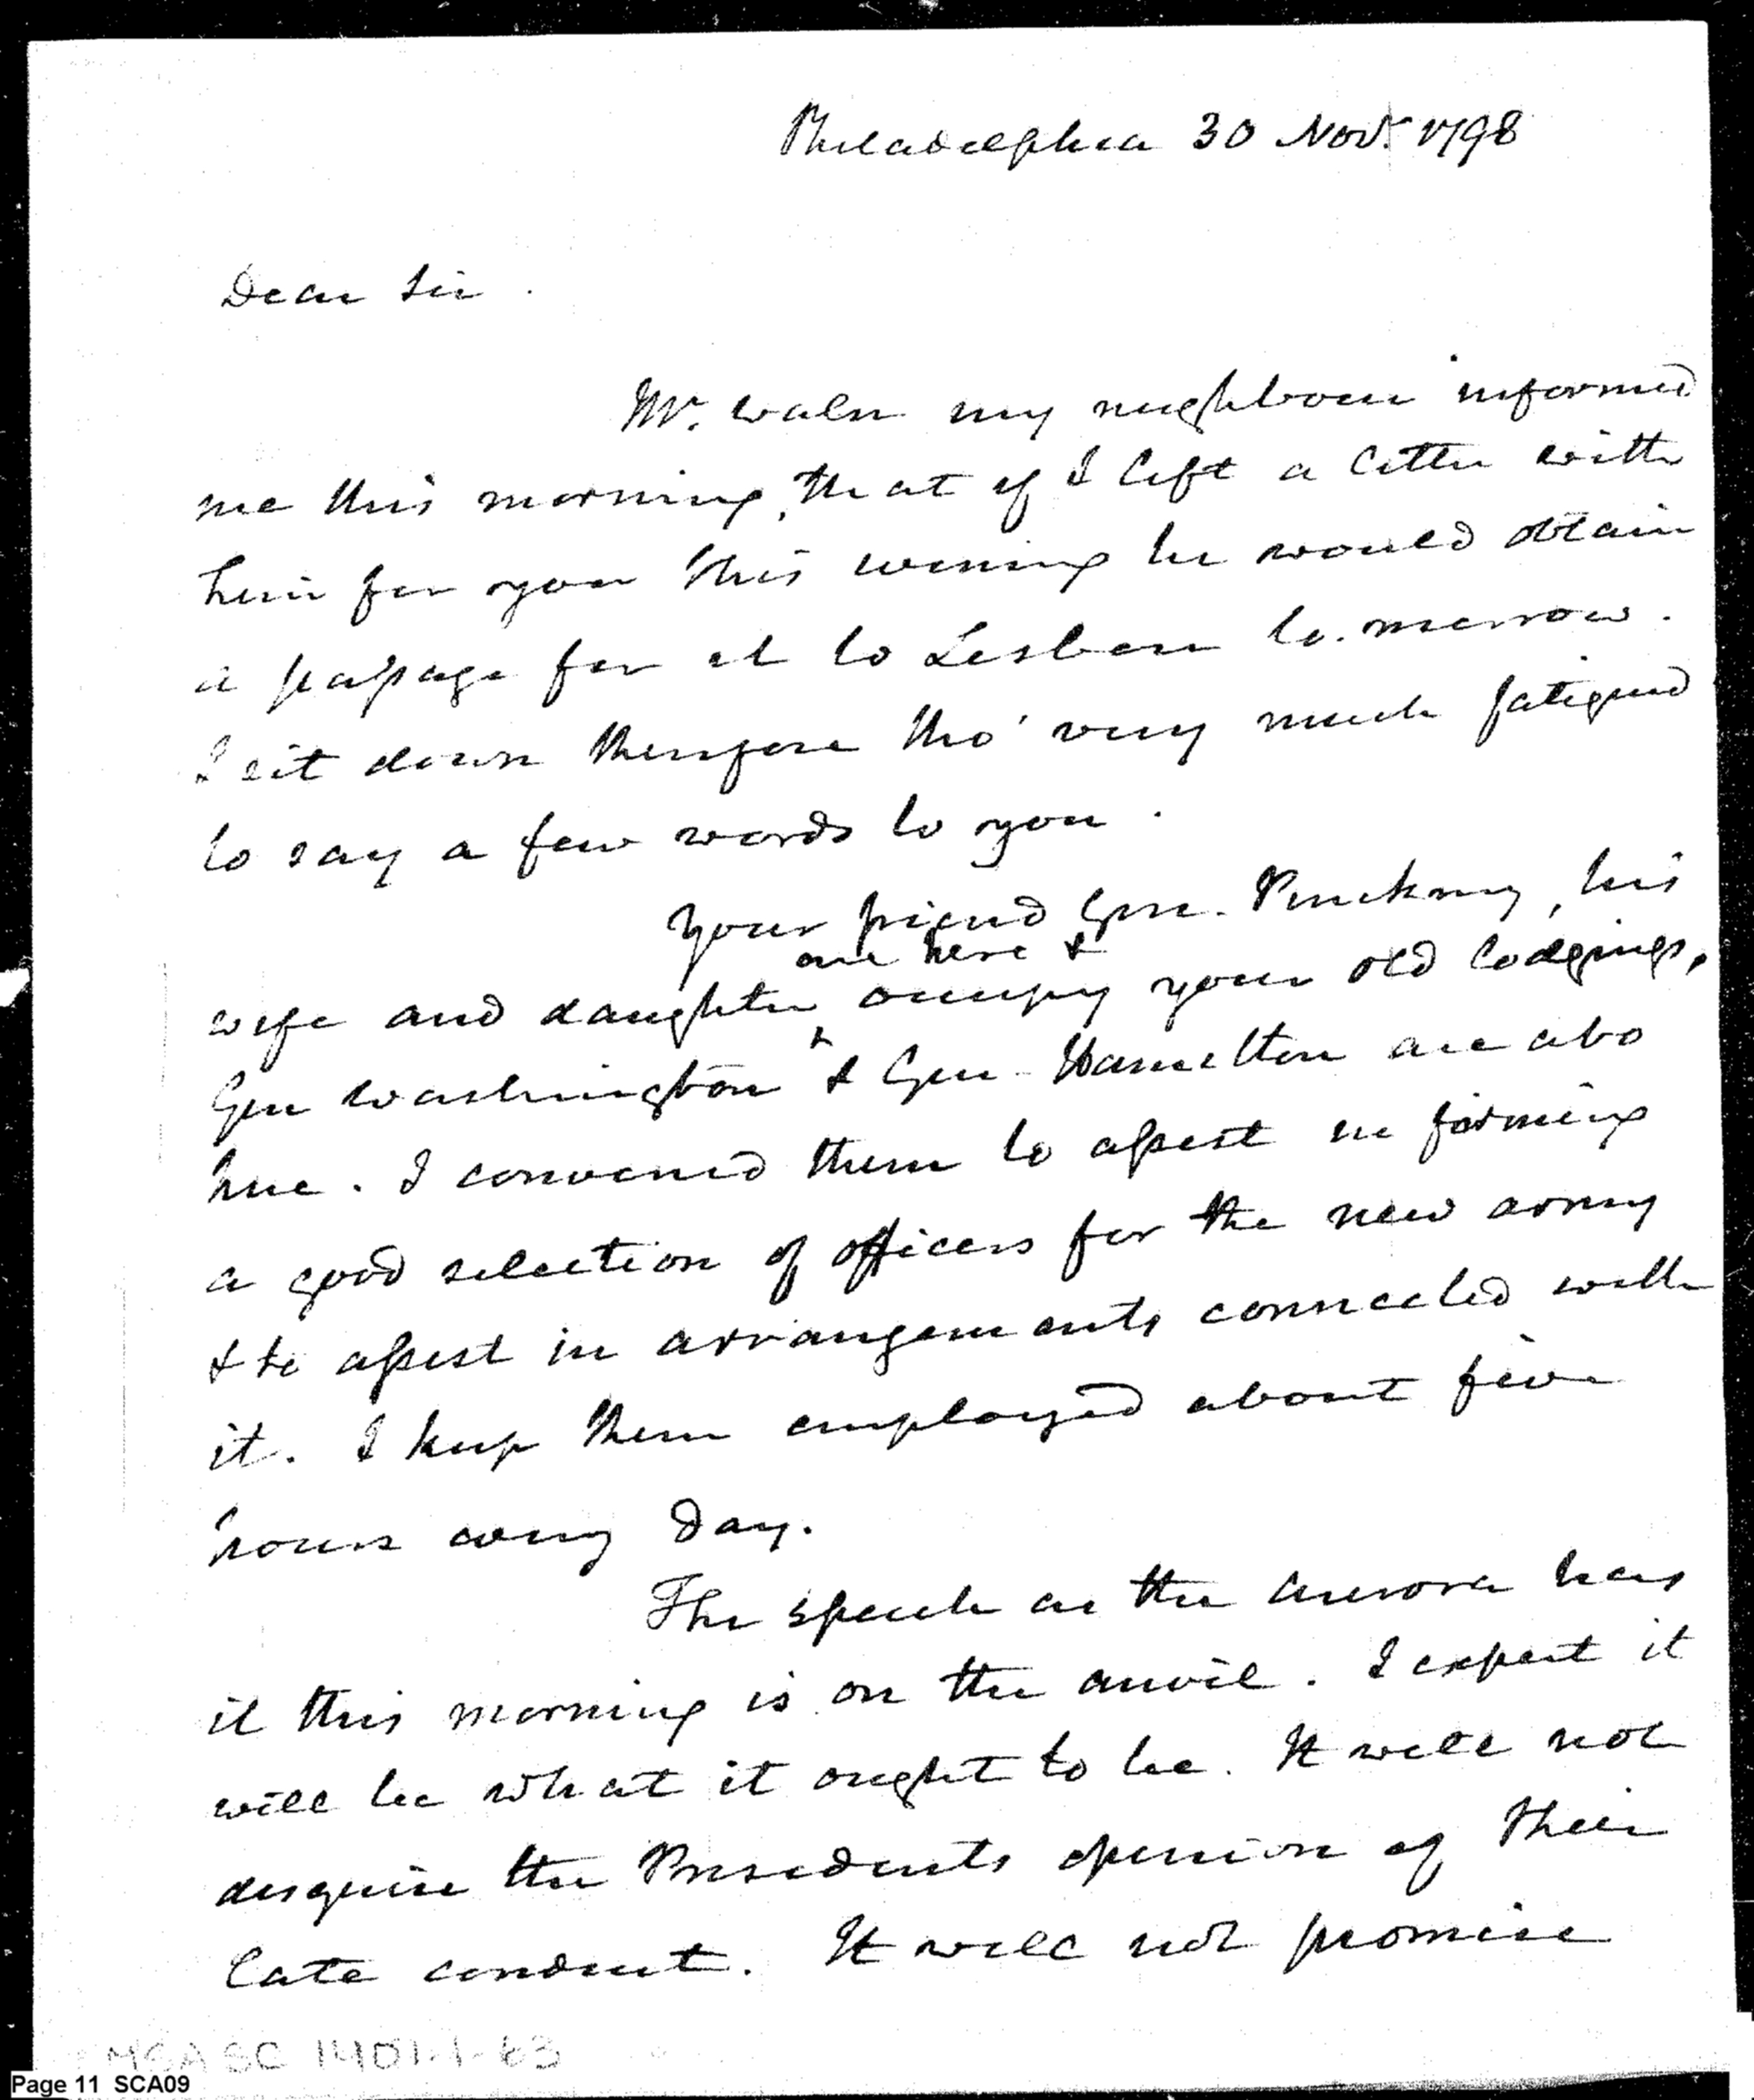 Philadelphia 30 Nov. 1798
Dear Sir.
Mr. Waln my neighbour informed
me this morning, that if I left a letter with
him for you this evening he would obtain
a passage for it to Lisbon to.morrow.
I sit down therefore tho' very much fatigued
to say a few words to you.
Your friend Gen. Pinckney, his
are here &
wife and daughter occupy your old lodgings,
Gen Washington & Gen. Hamilton are also
here. I convened them to assist in forming
a good selection of officers for the new army
& to assist in arrangements connected with
it. I keep them employed about five
hours every day.
The speech as the Aurora has
it this morning is on the anvil. I expect it
will be what it ought to be. It will not
disguise the Presidents opinion of their
late conduct. It will not promise
MSA SC 1401-1-63
Page 11 SCA09